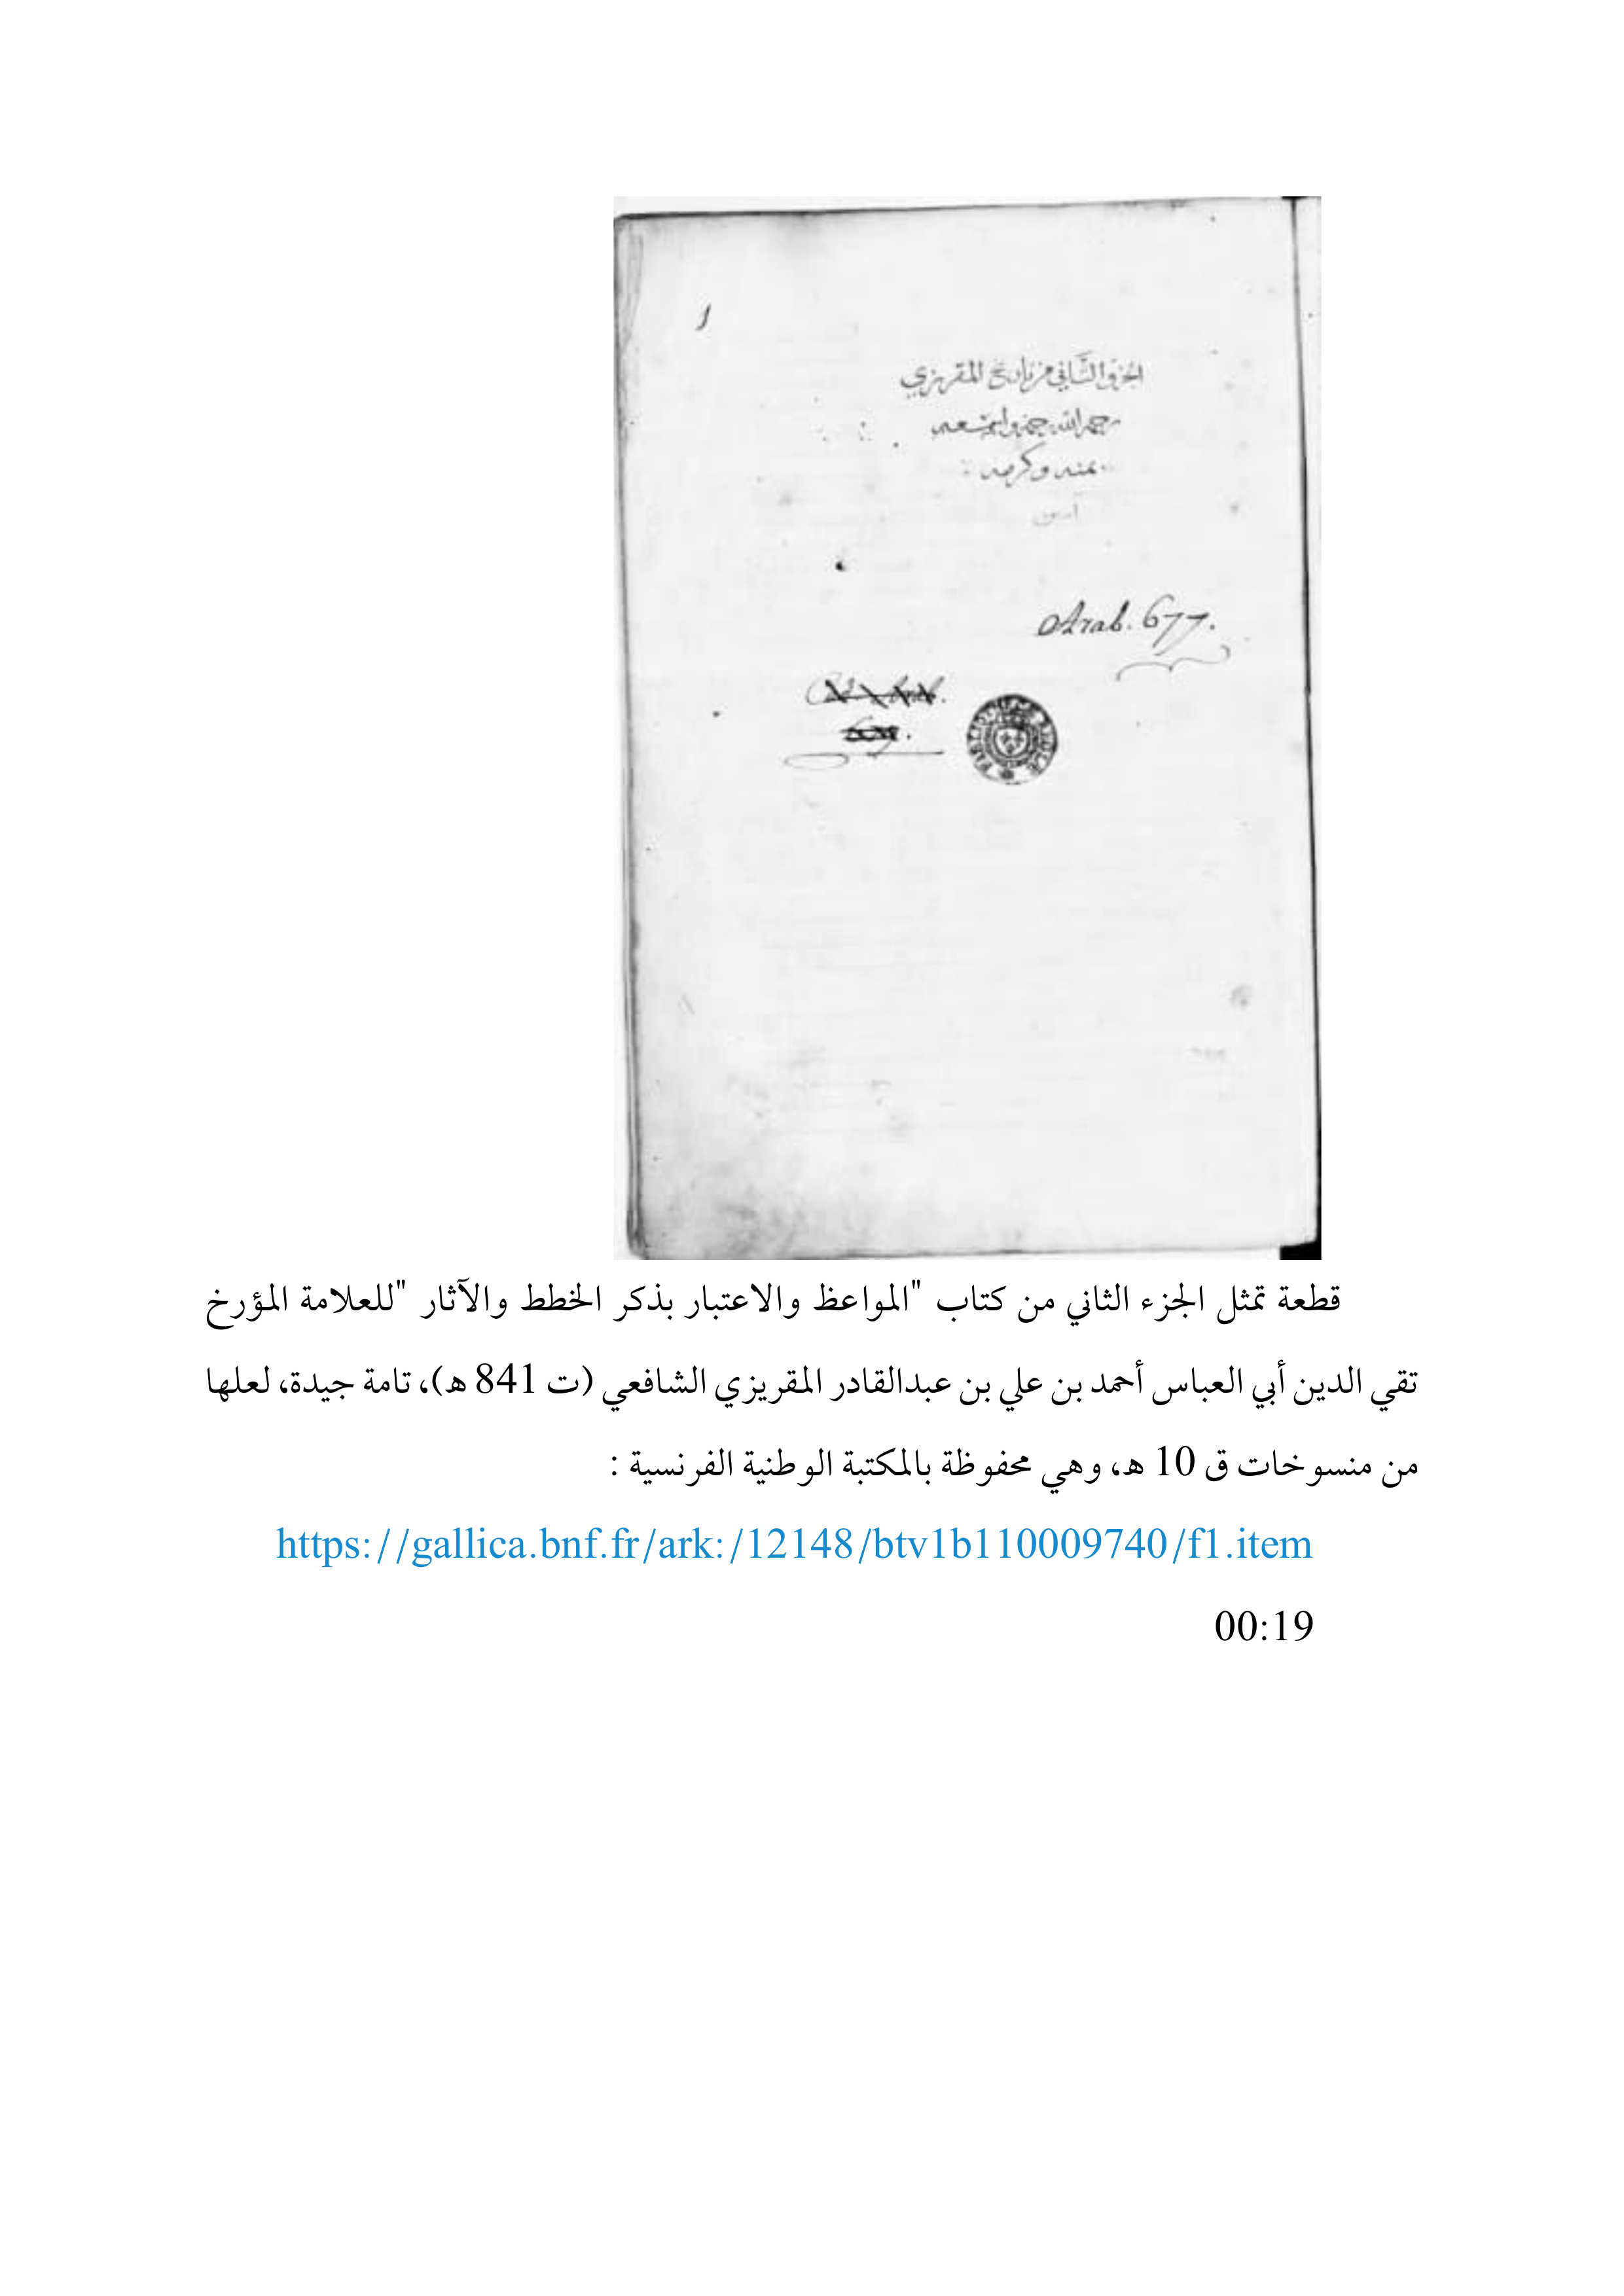 1
الجزو الثاني من تاريخ المقريزي
رحمه الله
بمنه وكرمه
آمين
Arab. 677.
قطعة تمثل الجزء الثاني من كتاب "المواعظ والاعتبار بذكر الخطط والآثار "للعلامة المؤرخ
تقي الدين أبي العباس أحمد بن علي بن عبدالقادر المقريزي الشافعي (ت 841 ه)، تامة جيدة، لعلها
من منسوخات ق 10 ه، وهي محفوظة بالمكتبة الوطنية الفرنسية :
https://gallica.bnf.fr/ark:/12148/btv1b110009740/f1.item
00:19